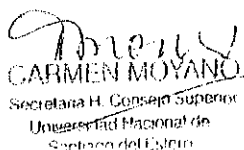 CARMEN MOYANO
Secretaria H. Consejo Superior
Universidad Nacional de
Santiago del Estero